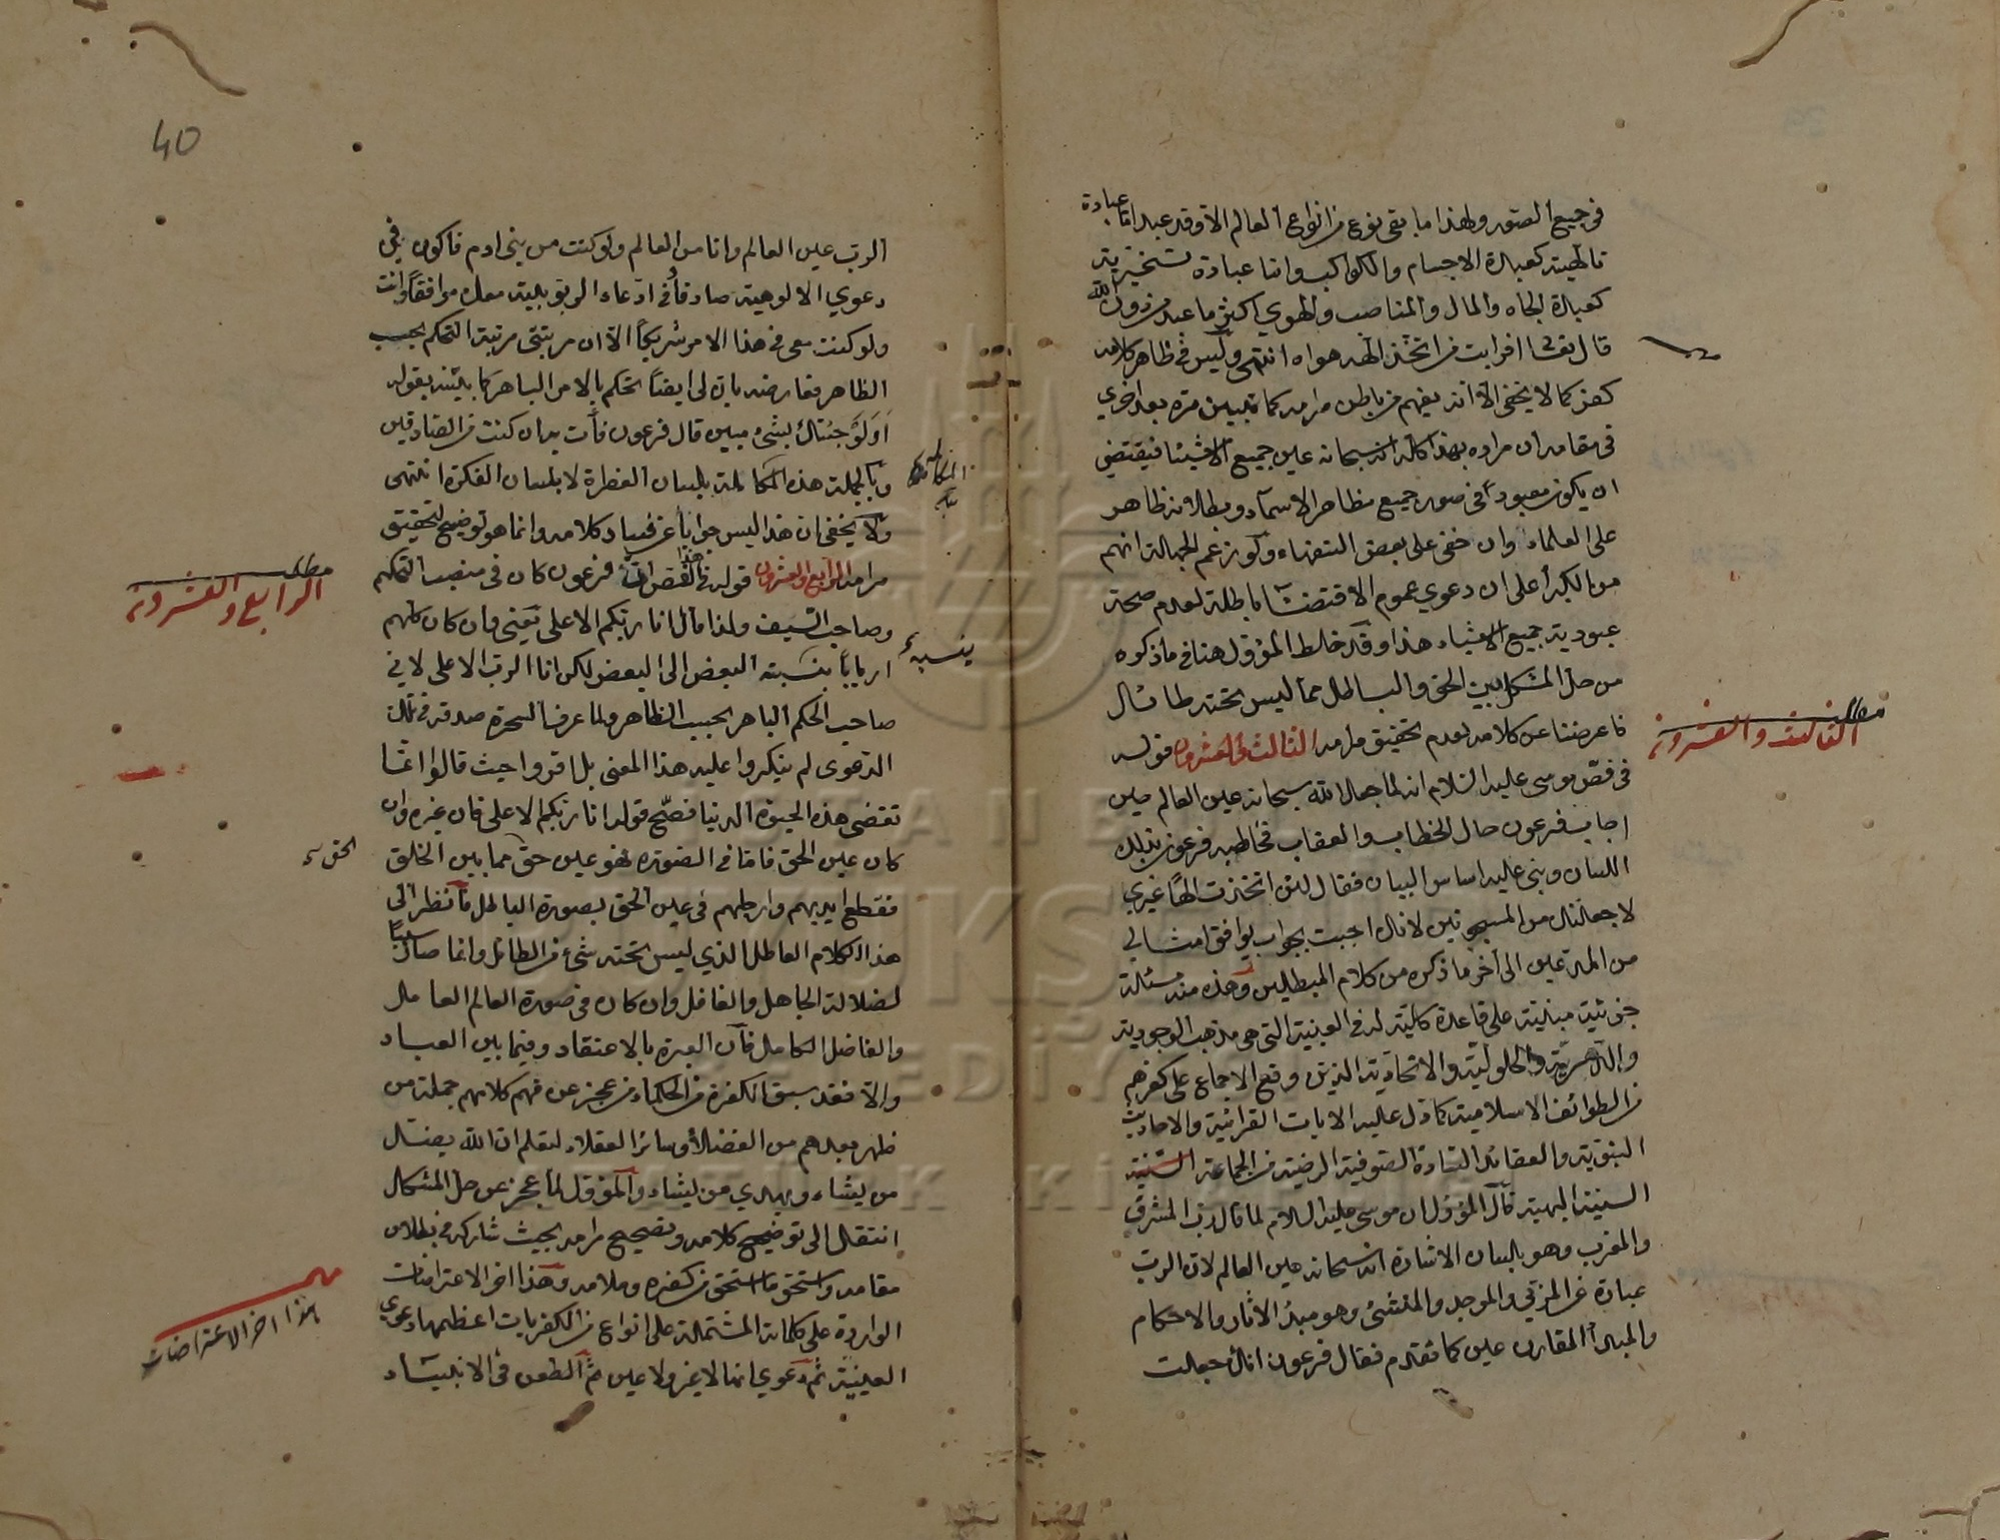 في جميع الصور ولهذا ما بقي نوع من انواع العالم الا وقد عبد اما عبادة
تالهية كعبادة الاجسام والكواكب واما عبادة تسخيرية
كعبادة الجاه والمال والمناصب والهوي اكثر ما عبد من دون الله
قال تعالى افرايت من اتخذ الهه هواه انتهى وليس في ظاهر كلامه
كفر كما لا يخفى الا انه يفهم من باطن مرامه كما تبين مرة بعد اخري
في مقامه ان مراده بهذا كله انه سبحانه عين جميع الاشياء فيقتضي
ان يكون معبودا في صور جميع مظاهر الاسماء وبطلانه ظاهر
على العلماء وان خفى على بعض السفهاء وكون زعم الجهالة انهم
من الكبرأ على ان دعوي عموم الاقتضاء باطلة لعدم صحة
عبودية جميع الاشياء هذا وقد خلط المؤول هنا في ما ذكره
من حل المشكل بين الحق والباطل مما ليس تحته طائل
فاعرضنا عن كلامه لعدم تحقيق مرامه الثالث والعشرون قوله
في فص موسى عليه السلام انه لما جعل الله سبحانه عين العالم حين
اجاب فرعون حال الخطاب والعقاب فخاطبه فرعون بذلك
اللسان وبنى عليه اساس البيان فقال لئن اتخذت الها غيري
لاجعلنك من المسجونين لانك اجبت بجواب يوافق امثالي
من المدعين الى آخر ما ذكره من كلام المبطلين وهذه منه مسئلة
جزئية مبنية على قاعدة كلية له في العينية التي هي مذهب الوجودية
والدهرية والحلولية والاتحادية الذين وقع الاجماع على كفرهم
من الطوائف الاسلامية كما دل عليه الايات القرآنية والاحاديث
النبوية والعقائد السادة الصوفية الرضية من الجماعة السنية
السنية البهية قال المؤول ان موسى عليه السلام لما قال رب المشرق
والمغرب وهو بلسان الاشارة انه سبحانه عين العالم لان الرب
عبارة عن المربي والموجد والمنشئ وهو مبدأ الاثار والاحكام
والمبدأ المقارن عين كما تقدم فقال فرعون انك جعلت
مطلب
الثالث والعشرون
40
الرب عين العالم وانا من العالم ولو كنت من بني ادم فاكون في
دعوي الالوهية صادقا في ادعاء الربوبية معك موافقا وانت
ولو كنت معي في هذا الامر شريكا الا ان مرتبتي مرتبة التحكم بحسب
الظاهر فعارضه بان لي ايضا تحكم بالامر الباهر كما بينه بقوله
اولو جئتك بشئ مبين قال فرعون فأت به ان كنت من الصادقين
وبالجملة هذه المكالمة بلسان الفطرة لا بلسان الفكرة انتهى
ولا يخفى ان هذا ليس جوابا عن فساد كلامه وانما هو توضيح لتحقيق
مرامه الرابع والعشرون قوله في هذا الفص ان فرعون كان في منصب التحكم
وصاحب السيف ولذا قال انا ربكم الاعلى يعني وان كان كلهم
اربابا بنسبة البعض الى البعض لكن انا الرب الاعلى لاني
صاحب الحكم الباهر بحسب الظاهر ولما عرف السحرة صدقه في تلك
الدعوى لم ينكروا عليه هذا المعنى بل اقروا حيث قالوا انما
تقضى هذه الحيوة الدنيا فصح قوله انا ربكم الاعلى فان غيره وان
كان عين الحق فاما في الصورة فهو عين حق مما بين الخلق
فقطع ايديهم وارجلهم في عين الحق بصورة الباطل فانظر الى
هذا الكلام العاطل الذي ليس تحته شئ من الطائل وانما صار سببا
لضلالة الجاهل والغافل وان كان في صورة العالم العامل
والفاضل الكامل فان العبرة بالاعتقاد وفيما بين العباد
والا فقد سبق الكفرة من الحكماء من عجز عن فهم كلامهم جملة من
ظهر بعدهم من الفضلاء وسائر العقلاء لتعلم ان الله يضل
من يشاء ويهدي من يشاء والمؤول لما عجز عن حل المشكل
انتقل الى توضيح كلامه وتصحيح مرامه بحيث شاركه في بطلان
مقامه واستحق ما استحق من كفره وملامه وهذا اخر الاعتراضات
الواردة على كلماته المشتملة على انواع من الكفريات اعظمها دعوي
العينية ثم دعوي انها لا غير ولا عين ثم الطعن في الانبياء
المكالمة
بنسبة
مطلب
الرابع والعشرون
الحق
هذا اخر الاعتراضات